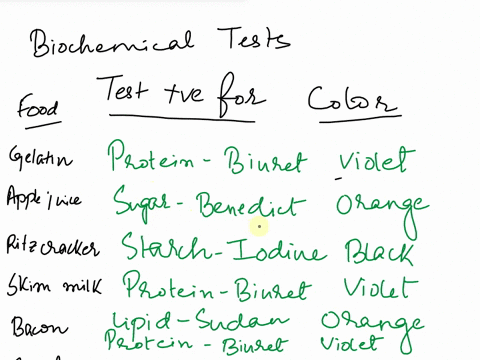 Biochemical Tests
Food Test +ve for Color
Gelatin Protein - Biuret Violet
Apple juice Sugar - Benedict Orange
Ritz cracker Starch - Iodine Black
Skim milk Protein - Biuret Violet
Bacon Lipid - Sudan Orange
Protein - Biuret Violet